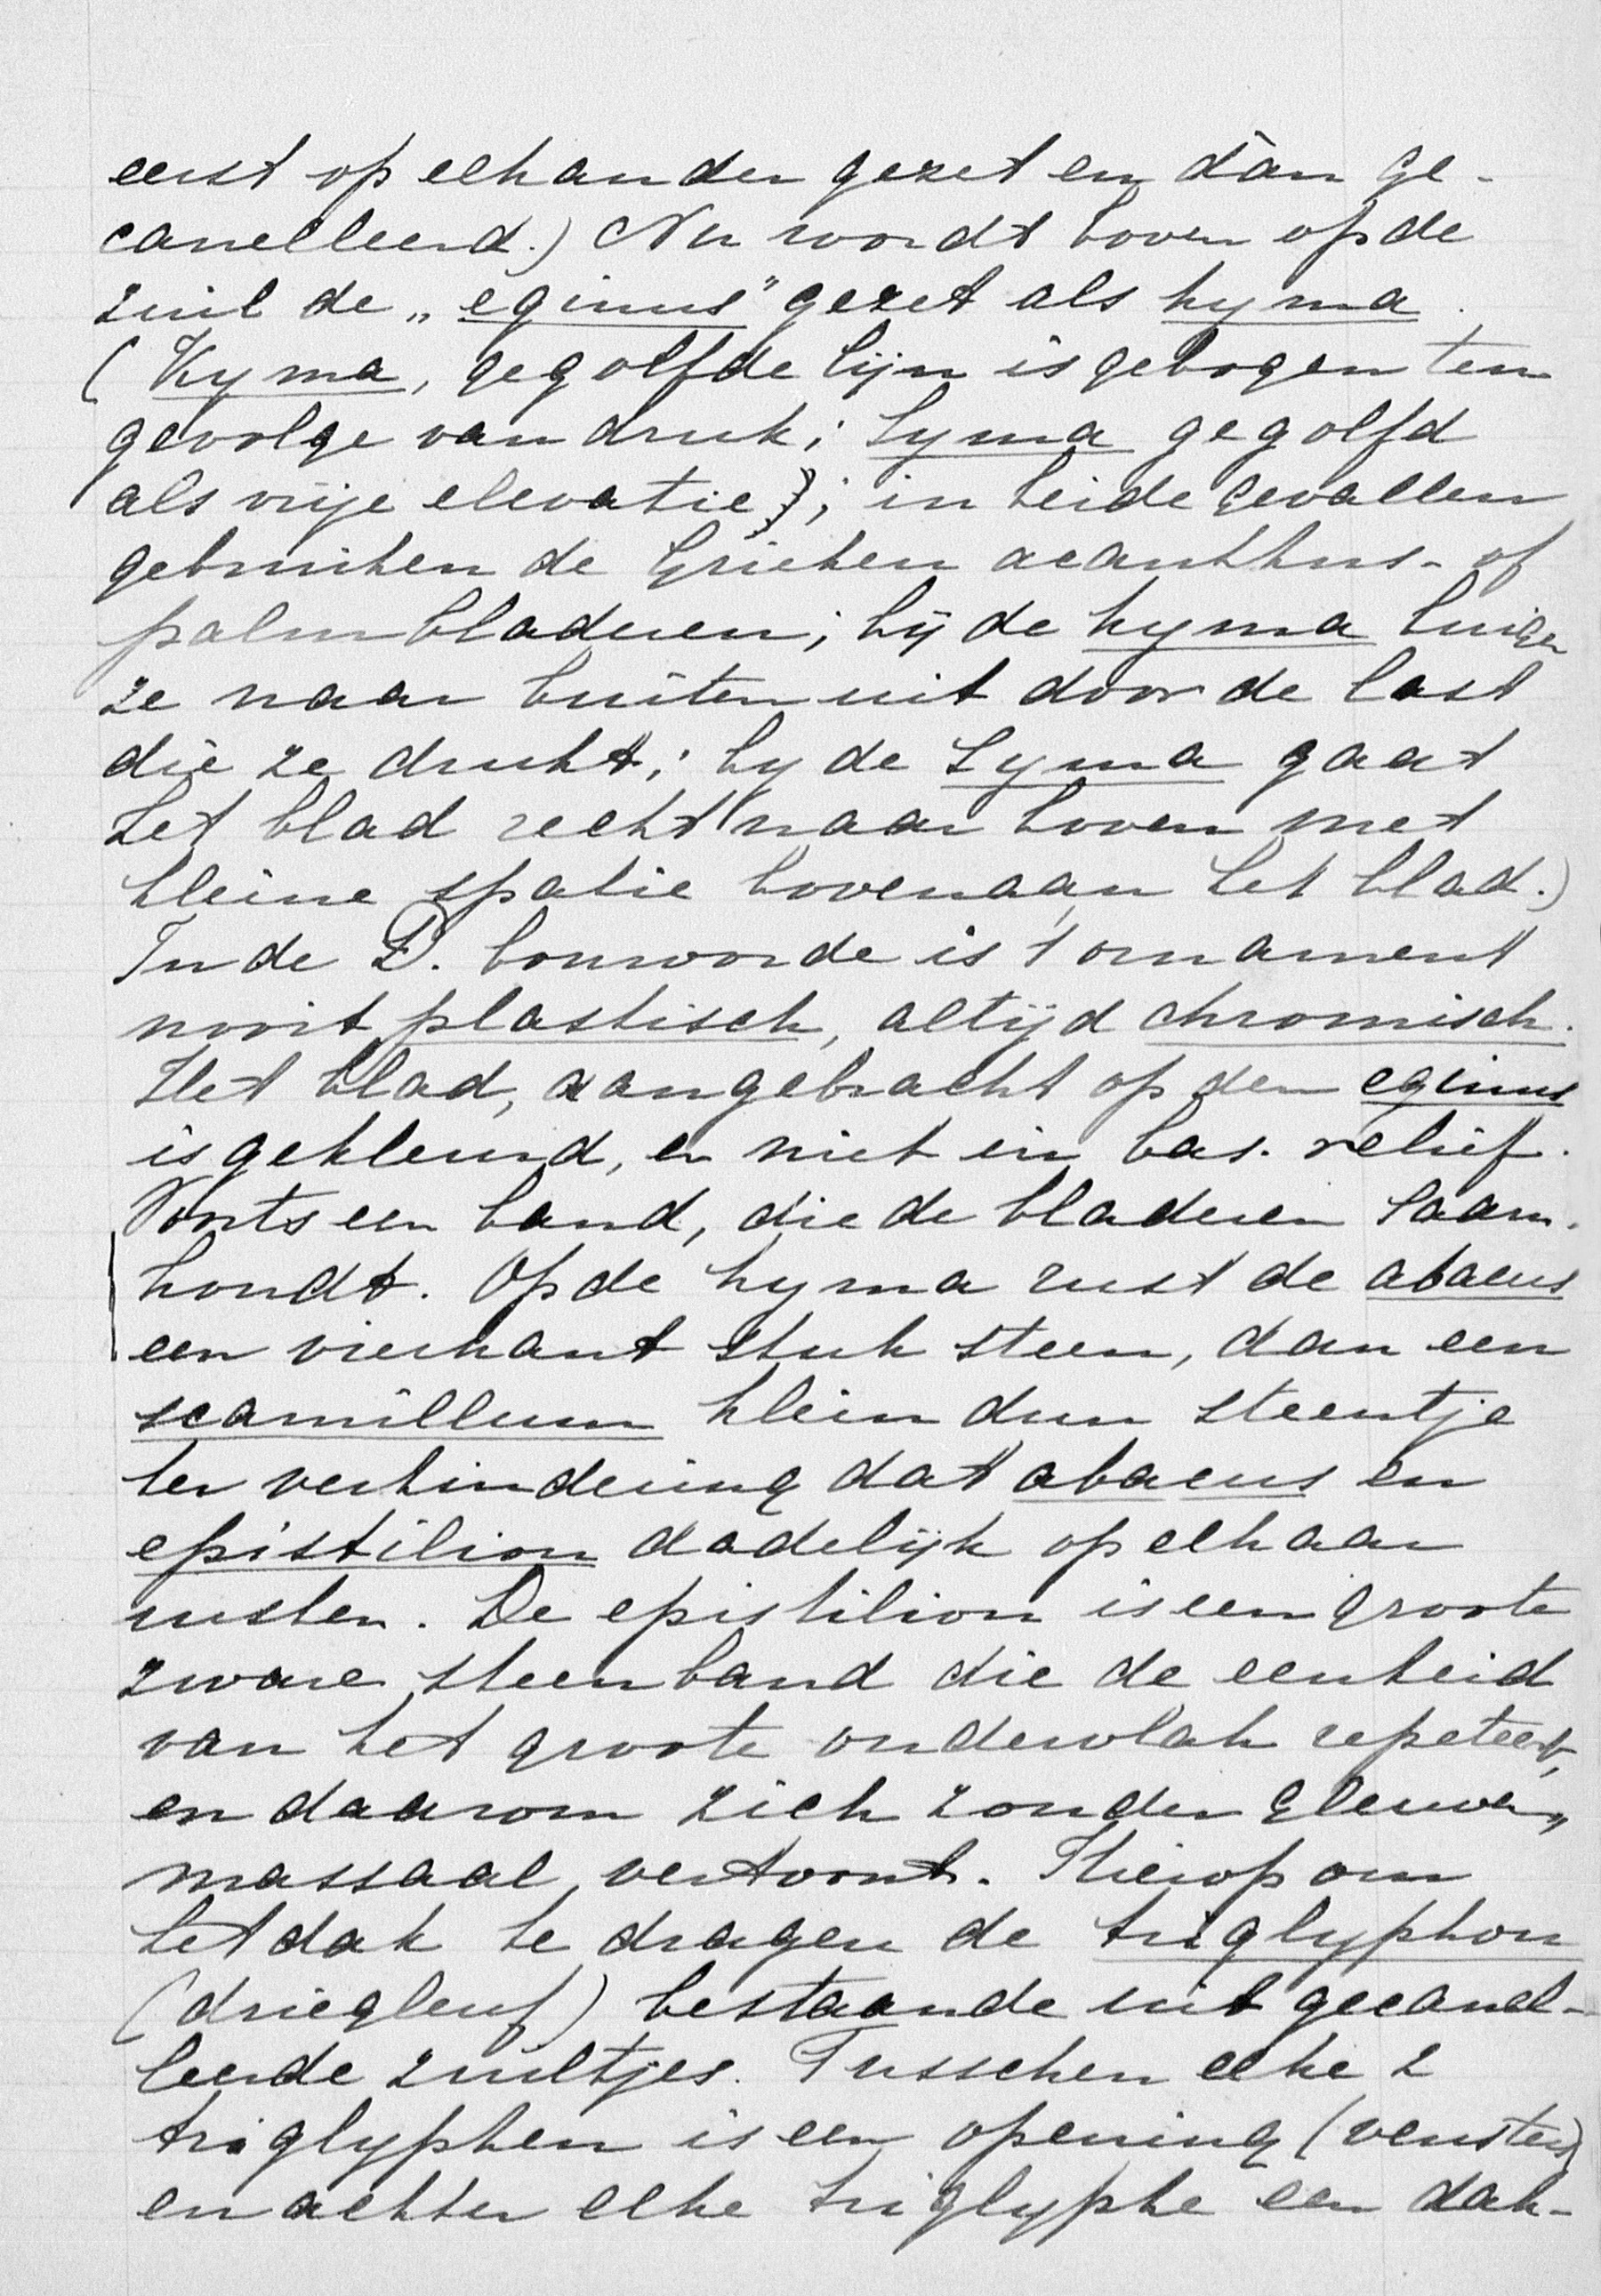 eerst op elkander gezet en dàn ge-
canelleerd.) Nu wordt boven op de
zuil de „eginus" gezet als kyma.
(Kyma, gegolfde lijn is gebogen ten
gevolge van druk; Syma gegolfd
als vrije elevatie); in beide gevallen
gebruiken de Grieken acanthus- of
palmbladeren; bij de kyma buigen
ze naar buiten uit door de last
die ze drukt; by de Syma gaat
het blad recht naar boven met
kleine spatie bovenaan het blad.)
In de D. bouworde is 't ornament
nooit plastisch, altijd chromisch.
Het blad, aangebracht op den eginus
is gekleurd, en niet in bas-relief.
Voorts een band, die de bladeren saam-
houdt. Op de kyma rust de abacus
een vierkant stuk steen, dan een
scamillum klein dun steentje
ter verhindering dat abacus en
epistilion dadelijk op elkaar
rusten. De epistilion is een groote
zware steenband die de eenheid
van het groote ondervlak repeteert,
en daarom zich zonder gleuven,
massaal vertoont. Hierop om
het dak te dragen de triglyphon
(driegleuf) bestaande uit gecanel-
leerde zuiltjes. Tusschen elke 2
triglyphen is een opening (vensters)
en achter elke triglyphe een dak-